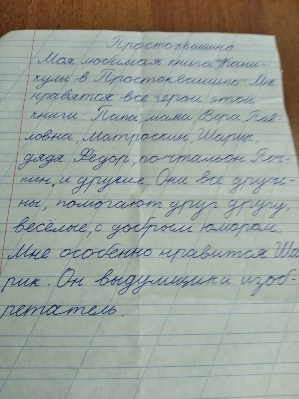 Простоквашино
Моя любимая книга "Кани-
кулы в Простоквашино" Мне
нравятся все герои этой
книги. Папа, мама, Вера Пав-
ловна, Матроскин, Шарик,
дядя Фёдор, почтальон Печ-
кин, и другие. Они все друж-
ны, помогают друг другу,
весёлые, с добрым юмором.
Мне особенно нравится Ша-
рик. Он выдумщик и изоб-
ретатель.